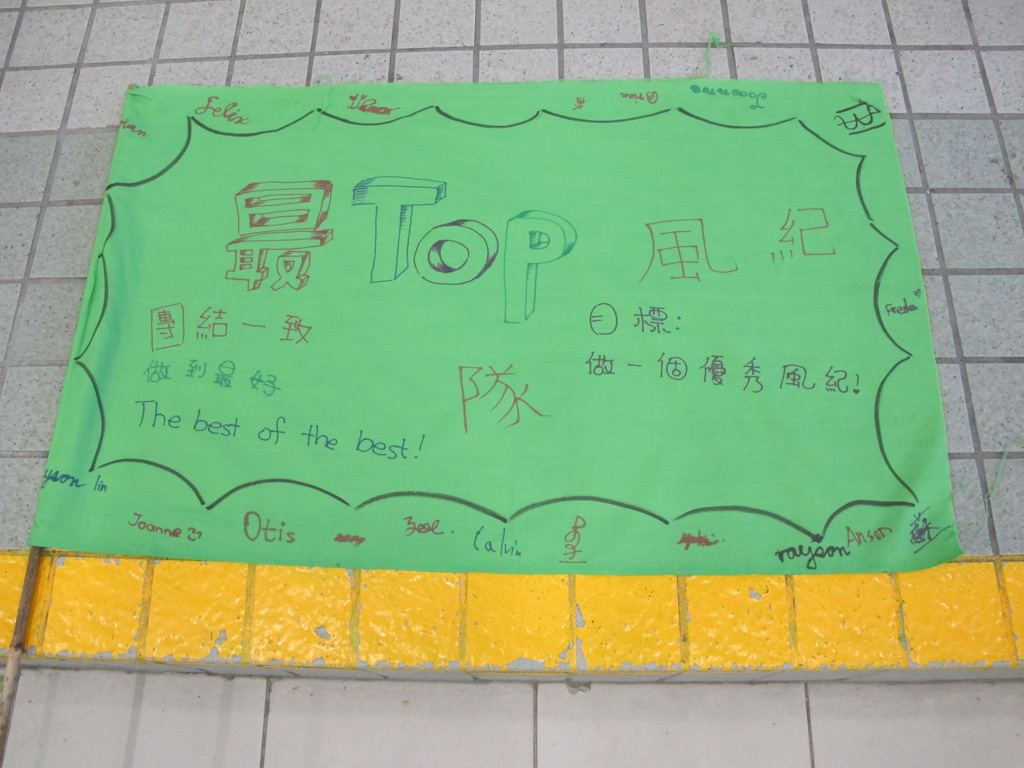 Felix
最 TOP 風紀
團結一致
做到最好
The best of the best!
隊
目標:
做一個優秀風紀!
yson lin
Joanne
Otis
Calvin
rayson
Anson